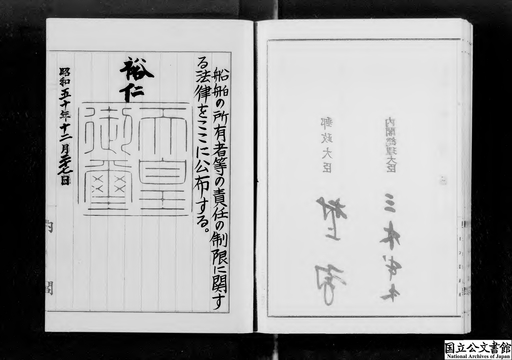 内閣総理大臣
三木武夫
郵政大臣
村上勇
船舶の所有者等の責任の制限に関す
る法律をここに公布する。
裕仁
天皇
御璽
昭和五十年十二月二十七日
内閣
国立公文書館
National Archives of Japan